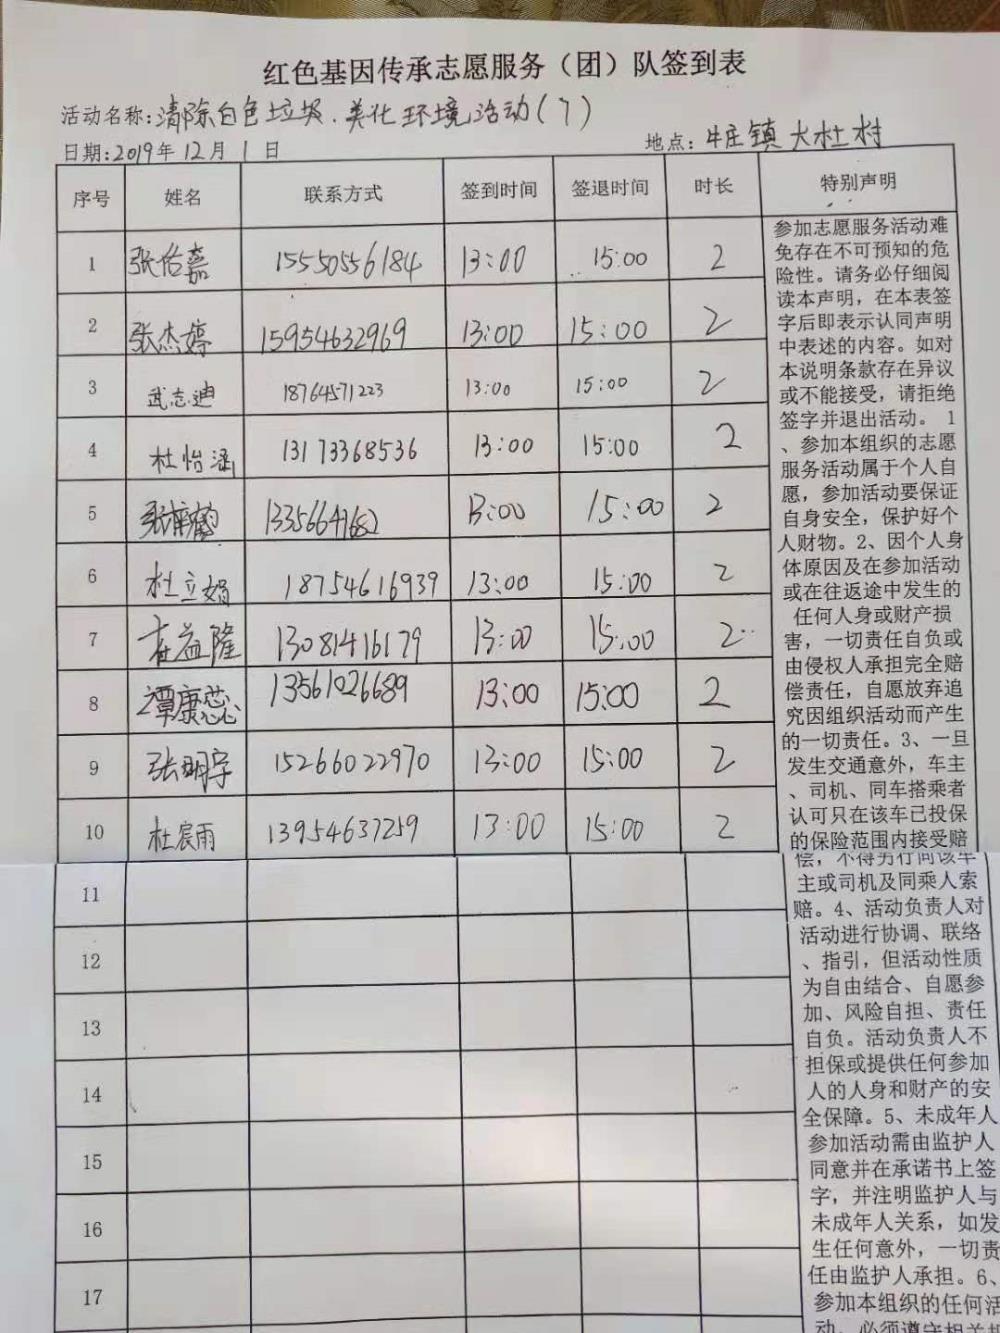 红色基因传承志愿服务（团）队签到表
活动名称:清除白色垃圾.美化环境活动(7)
日期:2019年12月1日
地点:牛庄镇大杜村
序号 姓名 联系方式 签到时间 签退时间 时长 特别声明
1 张怡嘉 15550556184 13:00 15:00 2
2 张杰婷 15954632969 13:00 15:00 2
3 武志迪 18764571223 13:00 15:00 2
4 杜怡涵 13173368536 13:00 15:00 2
5 13:00 15:00 2
6 杜立娟 18754616939 13:00 15:00 2
7 益隆 13081416179 13:00 15:00 2
8 谭康蕊 13561026689 13:00 15:00 2
9 张明宇 15266022970 13:00 15:00 2
10 杜宸雨 13954637259 13:00 15:00 2
11
12
13
14
15
16
17
参加志愿服务活动难
免存在不可预知的危
险性。请务必仔细阅
读本声明，在本表签
字后即表示认同声明
中表述的内容。如对
本说明条款存在异议
或不能接受，请拒绝
签字并退出活动。 1
、参加本组织的志愿
服务活动属于个人自
愿，参加活动要保证
自身安全，保护好个
人财物。2、因个人身
体原因及在参加活动
或在往返途中发生的
任何人身或财产损
害，一切责任自负或
由侵权人承担完全赔
偿责任，自愿放弃追
究因组织活动而产生
的一切责任。3、一旦
发生交通意外，车主
、司机、同车搭乘者
认可只在该车已投保
的保险范围内接受赔
偿，不得另行向该车
主或司机及同乘人索
赔。4、活动负责人对
活动进行协调、联络
、指引，但活动性质
为自由结合、自愿参
加、风险自担、责任
自负。活动负责人不
担保或提供任何参加
人的人身和财产的安
全保障。5、未成年人
参加活动需由监护人
同意并在承诺书上签
字，并注明监护人与
未成年人关系，如发
生任何意外，一切责
任由监护人承担。6、
参加本组织的任何活
动，必须遵守相关规